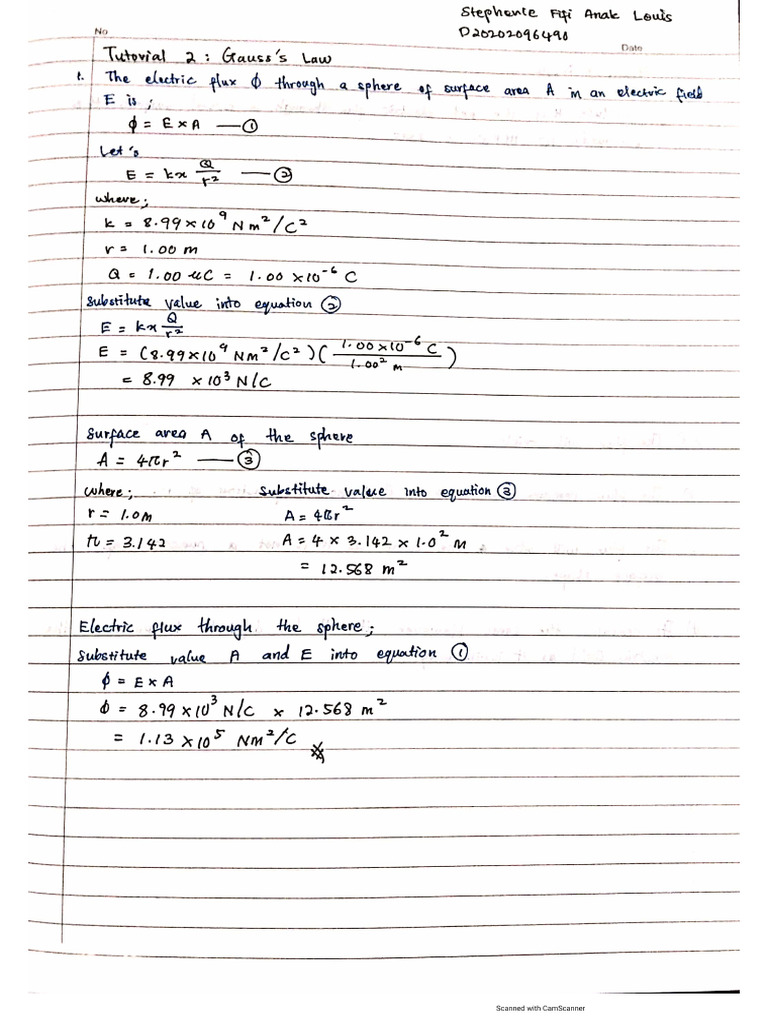 Stephanie Fifi Anak Louis
No
D20202096490
Date
Tutorial 2 : Gauss's Law
1. The electric flux ϕ through a sphere of surface area A in an electric field
E is ;
ϕ = E × A — ①
Let's
E = k× Q/r² — ②
where;
k = 8.99 × 10⁹ Nm²/C²
r = 1.00 m
Q = 1.00 uC = 1.00 ×10⁻⁶ C
Substitute value into equation ②
E = k× Q/r²
E = (8.99×10⁹ Nm²/C²)(1.00×10⁻⁶ C / 1.00² m)
= 8.99 × 10³ N/C
Surface area A of the sphere
A = 4πr² — ③
where; Substitute value into equation ③
r = 1.0m A = 4πr²
π = 3.142 A = 4 × 3.142 × 1.0² m
= 12.568 m²
Electric flux through the sphere;
Substitute value A and E into equation ①
ϕ = E × A
ϕ = 8.99 × 10³ N/C × 12.568 m²
= 1.13 × 10⁵ Nm²/C
Scanned with CamScanner